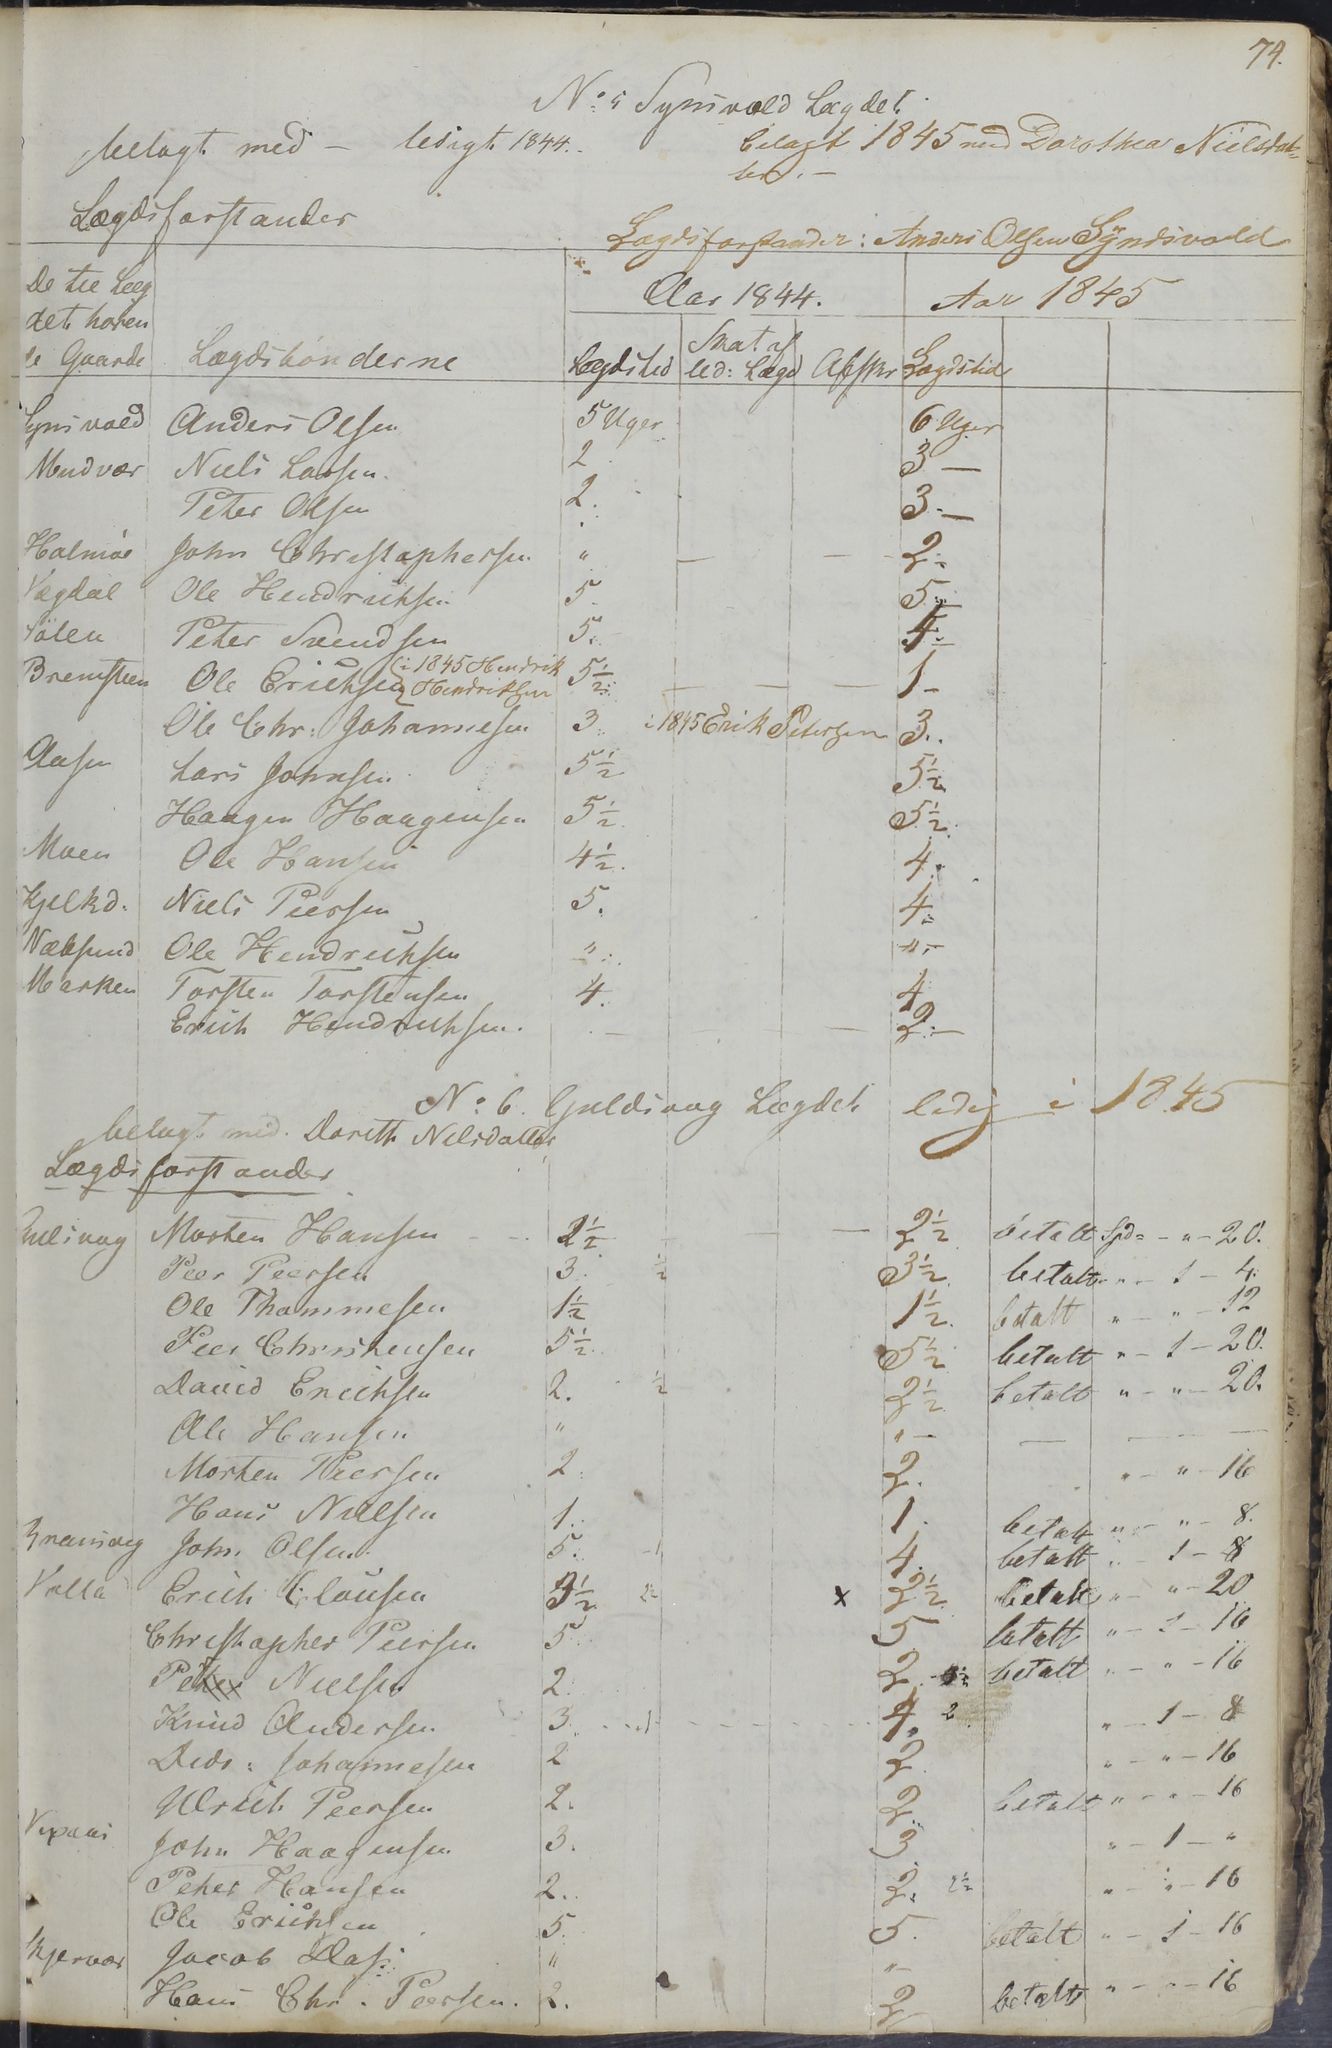 74.
No: 5 Synsvold Lægdet.
belagt med - ledigt 1844.
belagt 1845 med Dorothea Nielsdat=
ter. -
Lægdsforstander
Lægdsforstander: Anders Olsen Syndsvold
De til Læg
det hören
de Gaarde Lægdsbönderne
Aar 1844. Aar 1845
Lægdstid Skat af led: Lægd Afskr Lægdstid
Synsvold Anders Olsen 5 Uger 6 Uger
Mudvær Niels Larsen. 2 3 -
Peter Olsen 2. 3. -
Holmöe John Christophersen " - - 2.
Vægdal Ole Hendrichsen 5. 5.
Sölen Peter Svendsen 5. 4.
Bremsteen Ole Erichsen i 1845 Hendrik Hendriksen 5 1/2 - - - 1 -
Ole Chr: Johannesen 3. i 1845 Erik Petersen 3.
Aasen Lars Johnsen 5 1/2 5 1/2
Haagen Haagensen 5 1/2 5 1/2
Moen Ole Hansen 4 1/2. 4.
Kjelkd. Niels Peersen 5. 4.
Næbsund Ole Hendrichsen " "
Marken Torsten Torstensen 4. 4
Erich Hendrichsen. - - - 2. -
No: 6. Guldsvog Lægdet ledig i 1845
belagt med. Dorith Nilsdatter
Lægdsforstander
Guldsvog Morten Hansen 2 1/2 - 2 1/2 betalt Spd= - " - 20.
Peer Peersen 3. 1/2 3 1/2 betalt " - 1 - 4.
Ole Thommesen 1 1/2 1 1/2. betalt " - " - 12
Peer Christensen 5 1/2 5 1/2 betalt " - 1 - 20.
David Erichsen 2. 1/2 2 1/2 betalt " - " - 20.
Ole Hansen " " - - - -
Morten Peersen 2. 2. " - " - 16
Hans Nielsen 1. 1. betalt " - " - 8.
John Olsen. 5. 4. betalt " - 1 - 8
Valla Erich Clausen 3 1/2 x 2 1/2. betalt " - " - 20
Christopher Peersen 5 5. betalt " - 1 - 16
Peter Nielsen 2. 2. betalt " - " - 16
Knud Andersen 3. 4. 2 " - 1 - 8
Didr: Johannesen 2 2. " - " - 16
Ulrich Peersen 2. 2. betalt " - " - 16
John Haagensen 3. 3 " - 1 - "
Peter Hansen 2. 2. 2 1/2 " - " - 16
Ole Erichsen 5. 5. betalt " - 1 - 16
Skjervær Jacob Dass " "
Hans Chr. Peersen. 2. 2 betalt " - " - 16